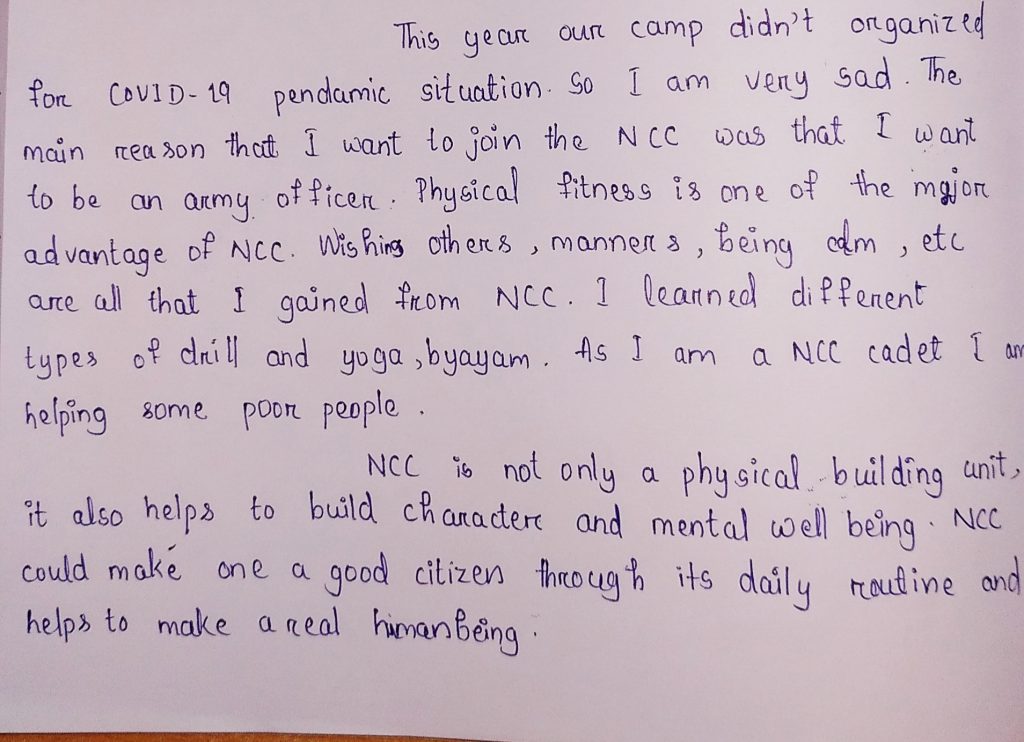 This year our camp didn't organized
for COVID-19 pendamic situation. So I am very sad. The
main reason that I want to join the NCC was that I want
to be an army officer. Physical fitness is one of the major
advantage of NCC. Wishing others, manners, being calm, etc
are all that I gained from NCC. I learned different
types of drill and yoga, byayam. As I am a NCC cadet I am
helping some poor people.
NCC is not only a physical building unit,
it also helps to build character and mental well being. NCC
could make one a good citizen through its daily routine and
helps to make a real human being.